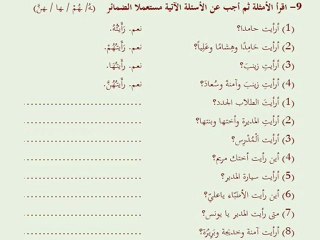 9- اقرأ الأمثلة ثم أجب عن الأسئلة الآتية مستعملا الضمائر (ـهُ/ هُمْ / ـها / هنَّ)
(1) أرأيت حامدا؟ نعم. رَأَيْتُهُ.
(2) أرأيت حَامِدًا وهِشَامًا وعَلِياً؟ نعم. رَأَيْتُهُمْ.
(3) أرأيتِ زينبَ؟ نعم. رَأَيْتُهَا.
(4) أرأيتِ زينبَ وآمنةَ وسُعادَ؟ نعم. رَأَيْتُهُنَّ.
(1) أرأيتَ الطلاب الجدد؟
(2) أرأيتِ المديرة وأختها وبنتها؟
(3) أرأيت الْمُدَرِّسَ؟
(4) أين رأيت أختك مريم؟
(5) أرأيت سيارة المدير؟
(6) أين رأيت الأطبّاء ياعليّ؟
(7) متى رأيت المدير يا يونس؟
(8) أرأيت آمنة وخديجة وبَرِيْرَة؟